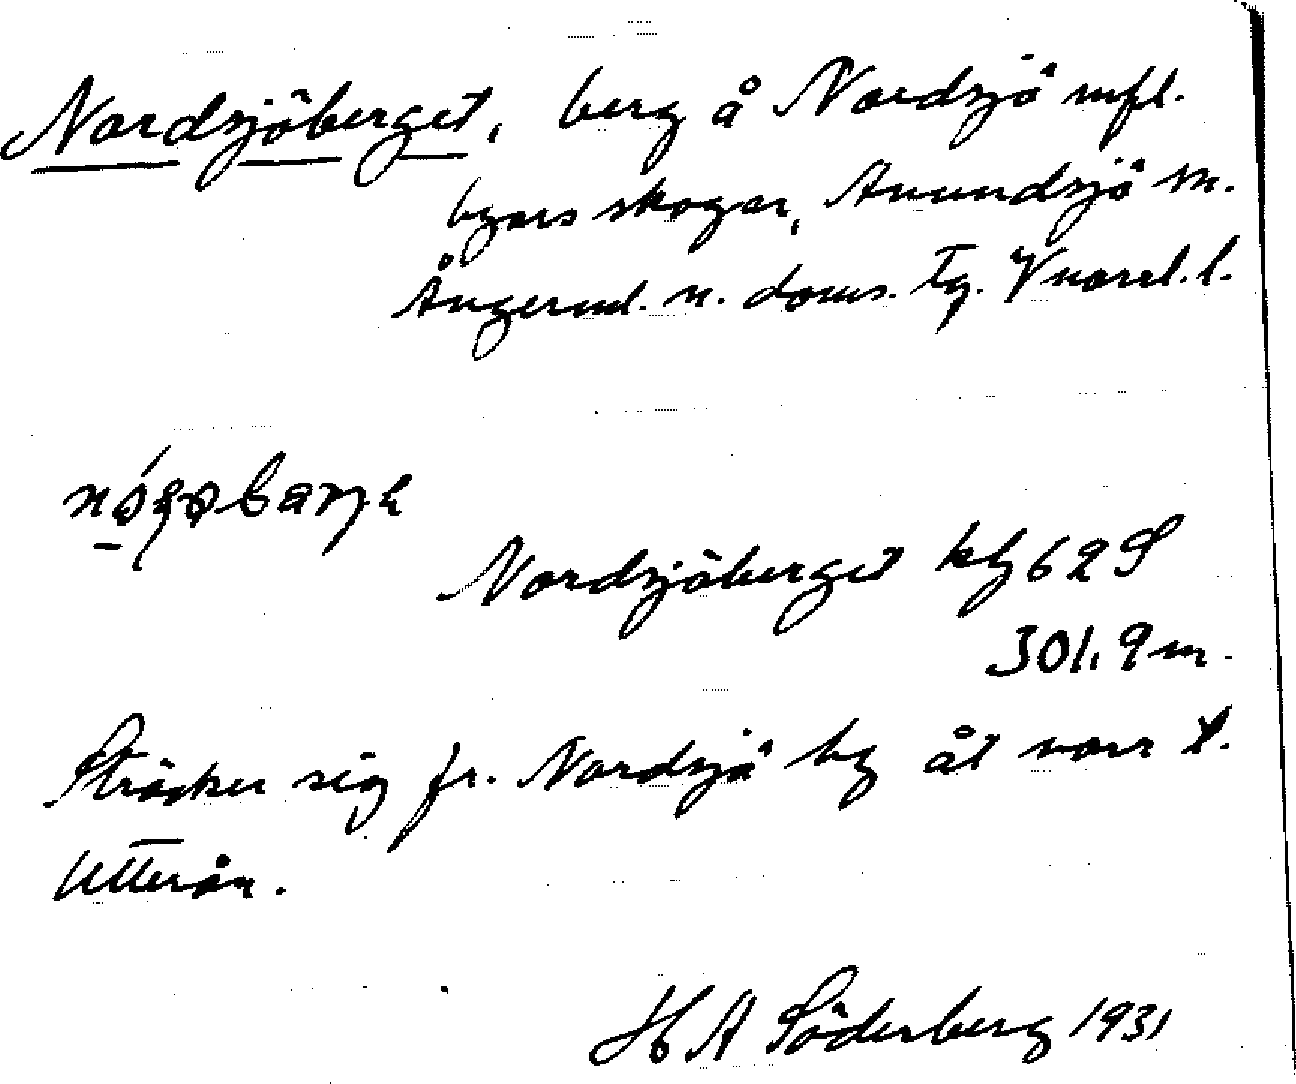 Nordsjöberget, berg å Nordsjö mfl.
byars skogar, Anundsjö sn.
Ångerml. n. doms. tg. Vnorrl. l.
Nordsjöberget kbl 62 S
301,9 m.
Sträcker sig fr. Nordsjö by åt norr t.
Utterån.
H A Söderberg 1931